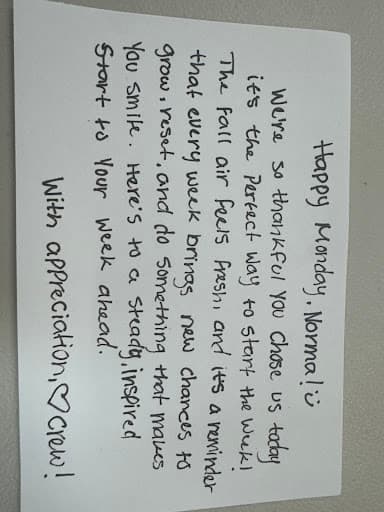 Happy Monday, Norma! ☺
We're so thankful you chose us today
it's the perfect way to start the week!
The fall air feels fresh, and it's a reminder
that every week brings new chances to
grow, reset, and do something that makes
you smile. Here's to a steady, inspired
start to your week ahead.
With appreciation, ♡ Crew!